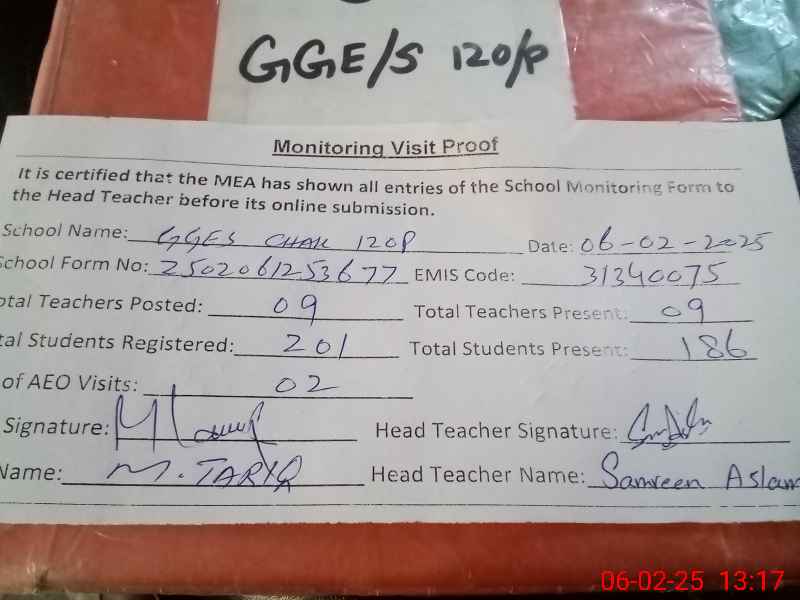 GGE/S 120/P
Monitoring Visit Proof
It is certified that the MEA has shown all entries of the School Monitoring Form to
the Head Teacher before its online submission.
School Name: GGES CHAK 120P Date: 06-02-2025
School Form No: 2502061253677 EMIS Code: 31340075
otal Teachers Posted: 09 Total Teachers Present: 09
tal Students Registered: 201 Total Students Present: 186
of AEO Visits: 02
Signature: Head Teacher Signature:
Name: M. TARIQ Head Teacher Name: Samreen Aslam
06-02-25 13:17